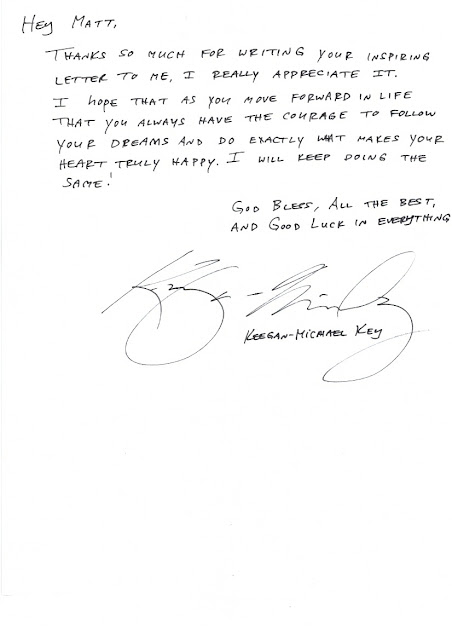 Hey Matt,
Thanks so much for writing your inspiring
letter to me, I really appreciate it.
I hope that as you move forward in life
that you always have the courage to follow
your dreams and do exactly what makes your
heart truly happy. I will keep doing the
same!
God Bless, All the best,
and Good Luck in everything
Keegan-Michael Key